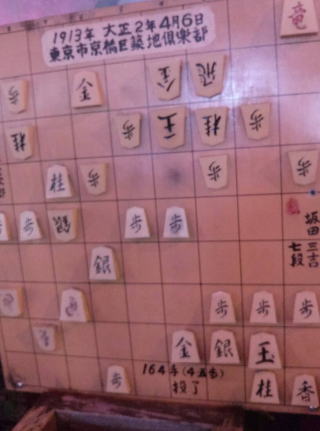 1913年 大正2年4月6日
東京市京橋区築地倶楽部
竜
金 金 飛
歩
桂 歩 王 桂 歩
桂 歩 歩 歩
歩 歩 銀 歩 歩
坂田三吉
七段
銀
歩 歩 歩
金 銀 玉
164手(4五歩)
投了
歩 桂 香